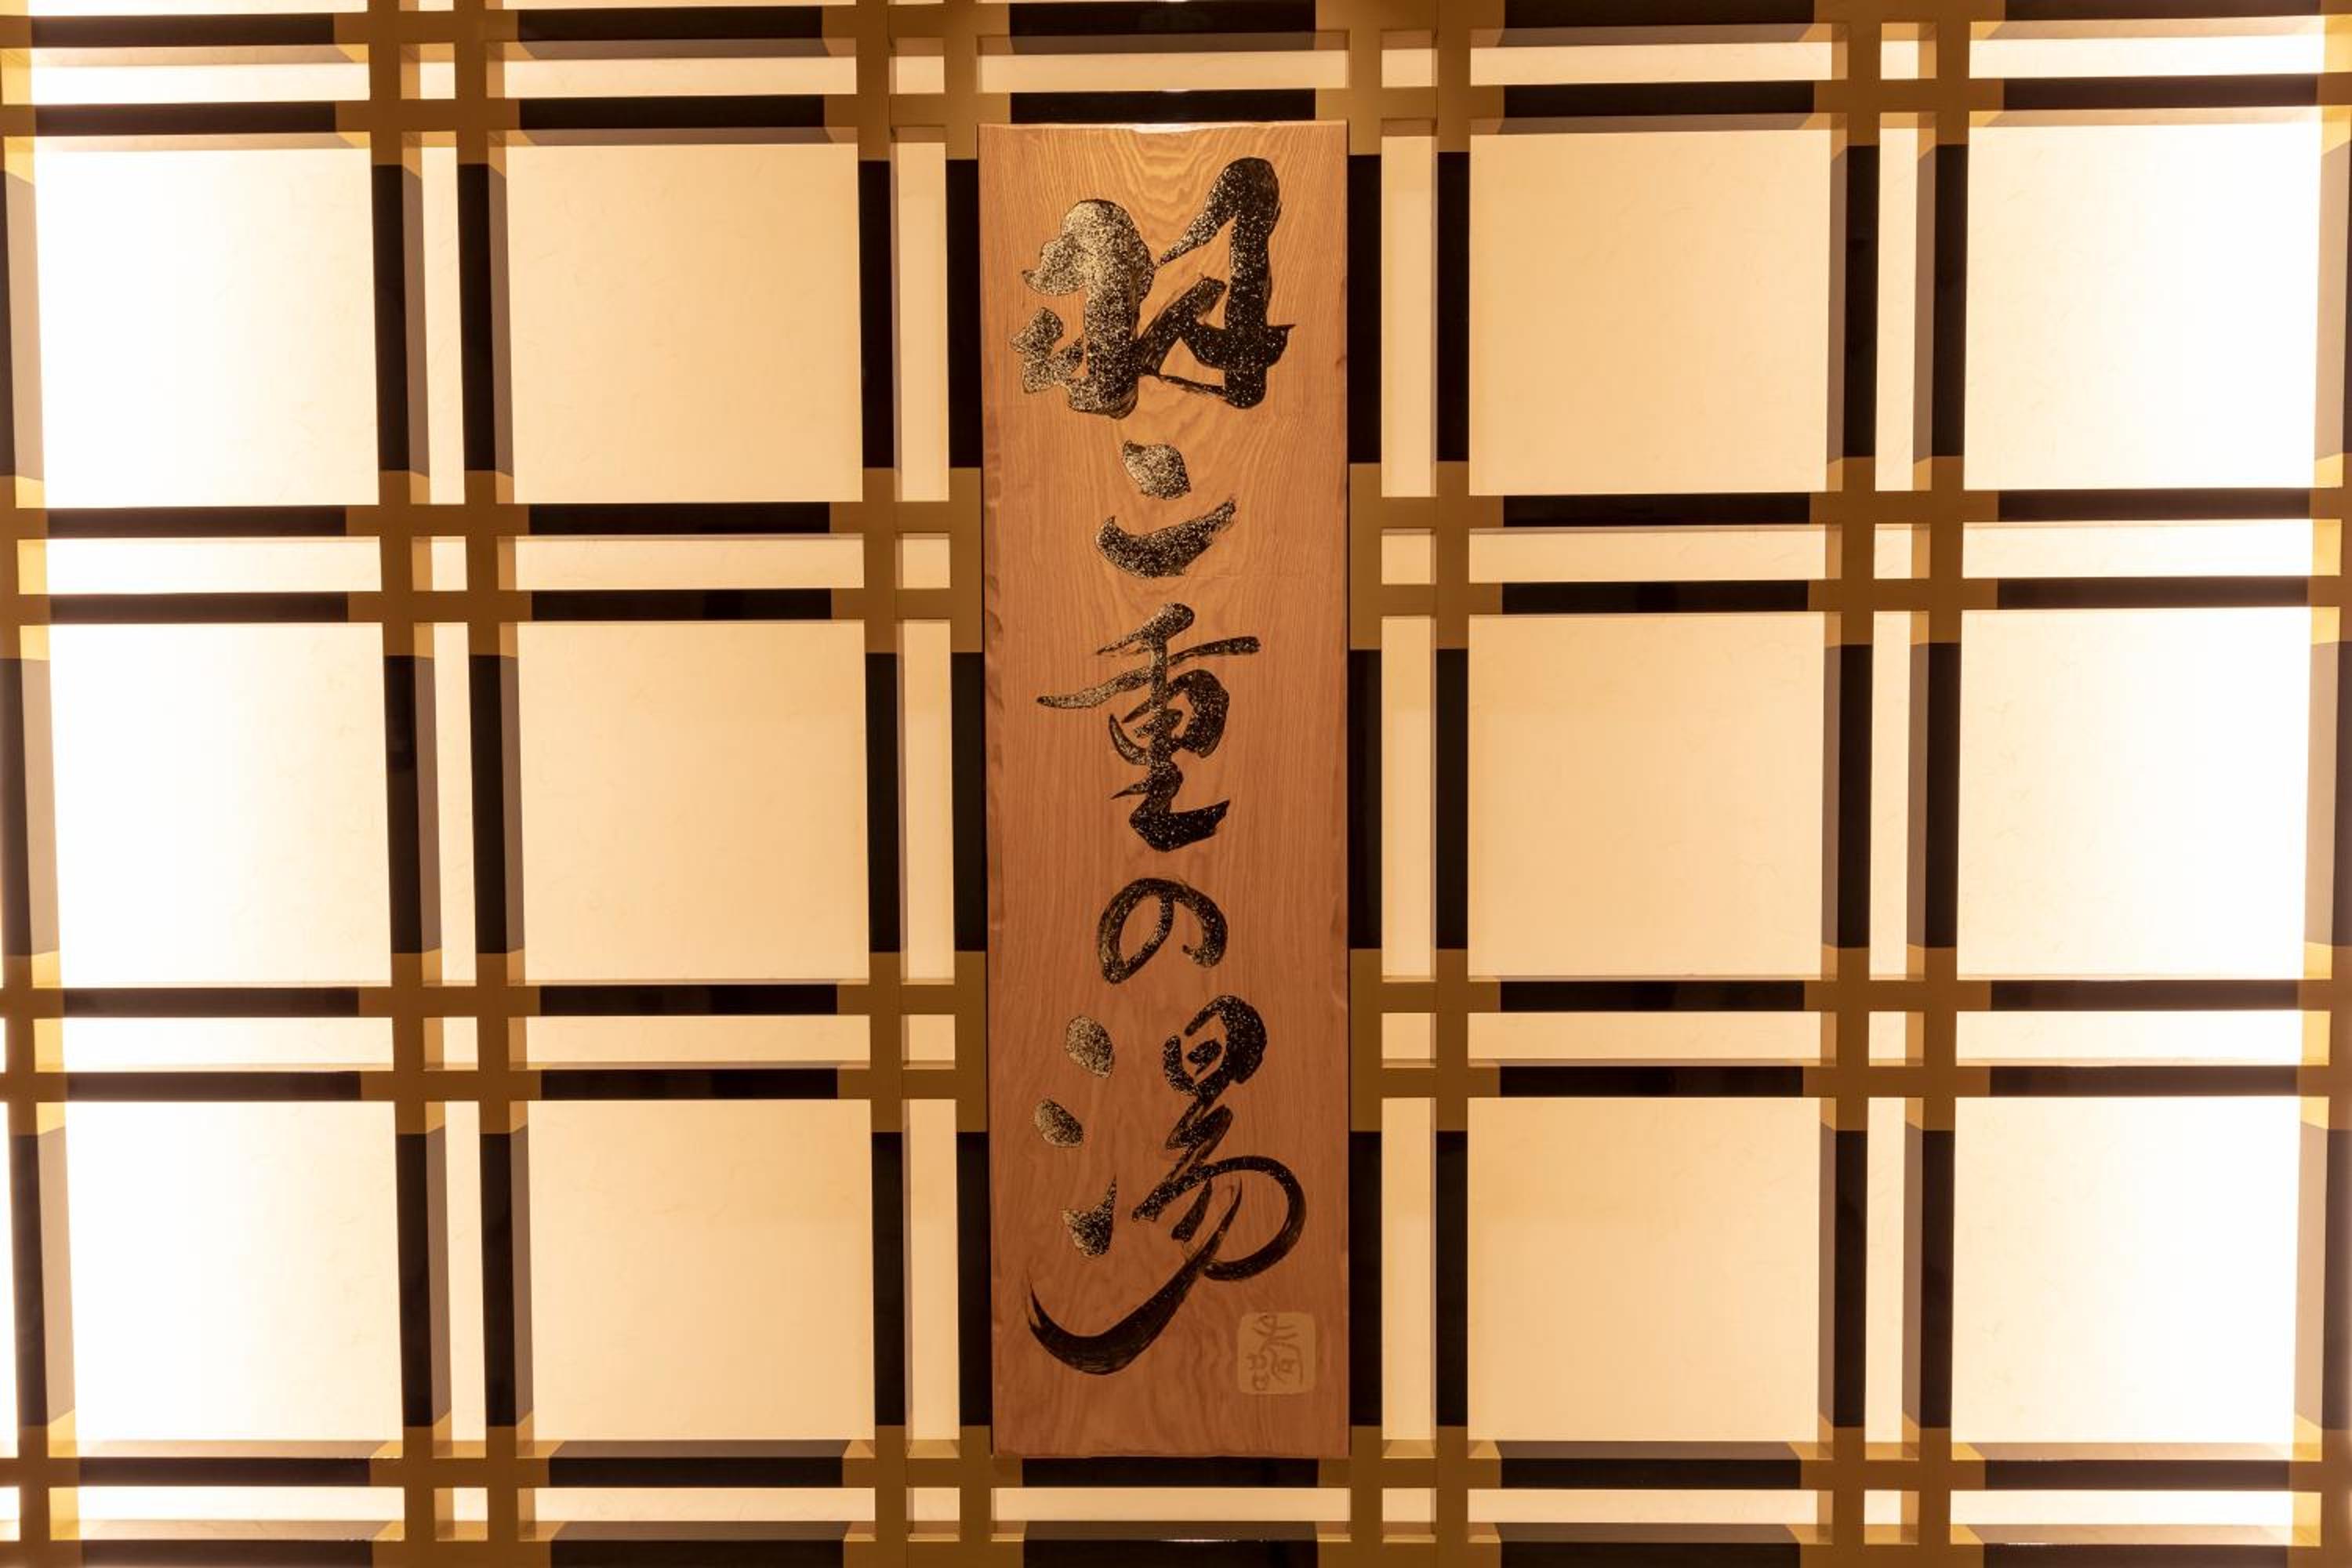 羽二重の湯